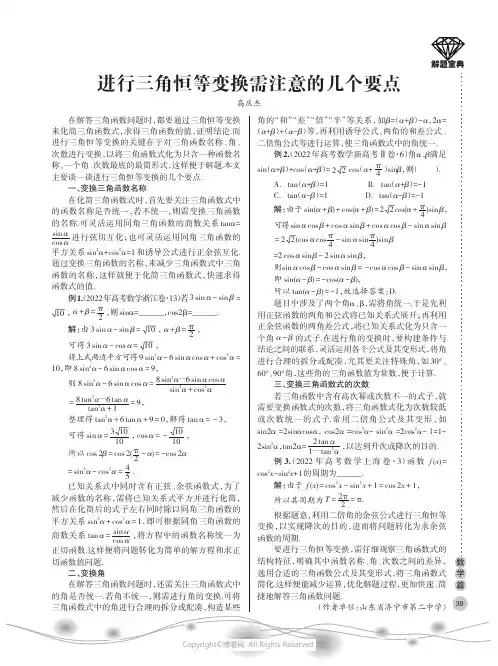 解题宝典
进行三角恒等变换需注意的几个要点
高庆杰
在解答三角函数问题时,都要通过三角恒等变换
来化简三角函数式,求得三角函数的值,证明结论.而
进行三角恒等变换的关键在于对三角函数名称、角、
次数进行变换,以将三角函数式化为只含一种函数名
称、一个角、次数最低的最简形式,这样便于解题.本文
主要谈一谈进行三角恒等变换的几个要点.
一、变换三角函数名称
在化简三角函数式时,首先要关注三角函数式中
的函数名称是否统一,若不统一,则需变换三角函数
的名称.可灵活运用同角三角函数的商数关系tanα=
sinα/cosα 进行弦切互化;也可灵活运用同角三角函数的
平方关系sin²α+cos²α=1和诱导公式进行正余弦互化.
通过变换三角函数的名称,来减少三角函数式中三角
函数的名称,这样就便于化简三角函数式,快速求得
函数式的值.
例1.(2022年高考数学浙江卷·13)若3sinα-sinβ=
√10,α+β=π/2,则sinα=______,cos2β=______.
解:由3sinα-sinβ=√10,α+β=π/2,
可得3sinα-cosα=√10,
将上式两边平方可得9sin²α-6sinαcosα+cos²α=
10,即8sin²α-6sinαcosα=9,
则8sin²α-6sinαcosα=(8sin²α-6sinαcosα)/(sin²α+cos²α)
=(8tan²α-6tanα)/(tan²α+1)=9,
整理得tan²α+6tanα+9=0,解得tanα=-3,
可得sinα=3√10/10,cosα=-√10/10,
所以cos2β=cos2(π/2-α)=-cos2α
=sin²α-cos²α=4/5.
已知关系式中同时含有正弦、余弦函数式,为了
减少函数的名称,需将已知关系式平方并进行化简,
然后在化简后的式子左右同时除以同角三角函数的
平方关系sin²α+cos²α=1,即可根据同角三角函数的
商数关系tanα=sinα/cosα,将方程中的函数名称统一为
正切函数.这样便将问题转化为简单的解方程和求正
切函数值问题.
二、变换角
在解答三角函数问题时,还需关注三角函数式中
的角是否统一.若角不统一,则需进行角的变换.可将
三角函数式中的角进行合理的拆分或配凑,构造某些
角的“和”“差”“倍”“半”等关系,如β=(α+β)-α,2α=
(α+β)+(α-β)等,再利用诱导公式、两角的和差公式、
二倍角公式等进行运算,使三角函数式中的角统一.
例2.(2022年高考数学新高考Ⅱ卷·6)角α,β满足
sin(α+β)+cos(α+β)=2√2cos(α+π/4)sinβ,则( ).
A. tan(α+β)=1 B. tan(α+β)=-1
C. tan(α-β)=1 D. tan(α-β)=-1
解:由于sin(α+β)+cos(α+β)=2√2cos(α+π/4)sinβ,
可得sinαcosβ+cosαsinβ+cosαcosβ-sinαsinβ
=2√2(cosαcosπ/4-sinαsinπ/4)sinβ
=2cosαsinβ-2sinαsinβ,
则sinαcosβ-cosαsinβ=-cosαcosβ-sinαsinβ,
即sin(α-β)=-cos(α-β),
所以tan(α-β)=-1,故选择答案:D.
题目中涉及了两个角α、β,需将角统一,于是先利
用正弦函数的两角和公式将已知关系式展开;再利用
正余弦函数的两角差公式,将已知关系式化为只含一
个角α-β的式子.在进行角的变换时,要构建条件与
结论之间的联系,灵活运用各个公式及其变形式,将角
进行合理的拆分或配凑.尤其要关注特殊角,如30°、
60°、90°角,这些角的三角函数值为常数,便于计算.
三、变换三角函数式的次数
若三角函数中含有高次幂或次数不一的式子,就
需要变换函数式的次数,将三角函数式化为次数较低
或次数统一的式子.常用二倍角公式及其变形,如
sin2α=2sinαcosα、cos2α=cos²α-sin²α=2cos²α-1=1-
2sin²α,tan2α=2tanα/(1-tan²α),以达到升次或降次的目的.
例3.(2022年高考数学上海卷·3)函数f(x)=
cos²x-sin²x+1的周期为______.
解:由于f(x)=cos²x-sin²x+1=cos2x+1,
所以其周期为T=2π/2=π.
根据题意,利用二倍角的余弦公式进行三角恒等
变换,以实现降次的目的,进而将问题转化为求余弦
函数的周期.
要进行三角恒等变换,需仔细观察三角函数式的
结构特征,明确其中函数名称、角、次数之间的差异,
选用合适的三角函数公式及其变形式,将三角函数式
简化.这样便能减少运算,优化解题过程,更加快速、简
捷地解答三角函数问题.
(作者单位:山东省济宁市第二中学)
数学篇
39
Copyright©博看网. All Rights Reserved.